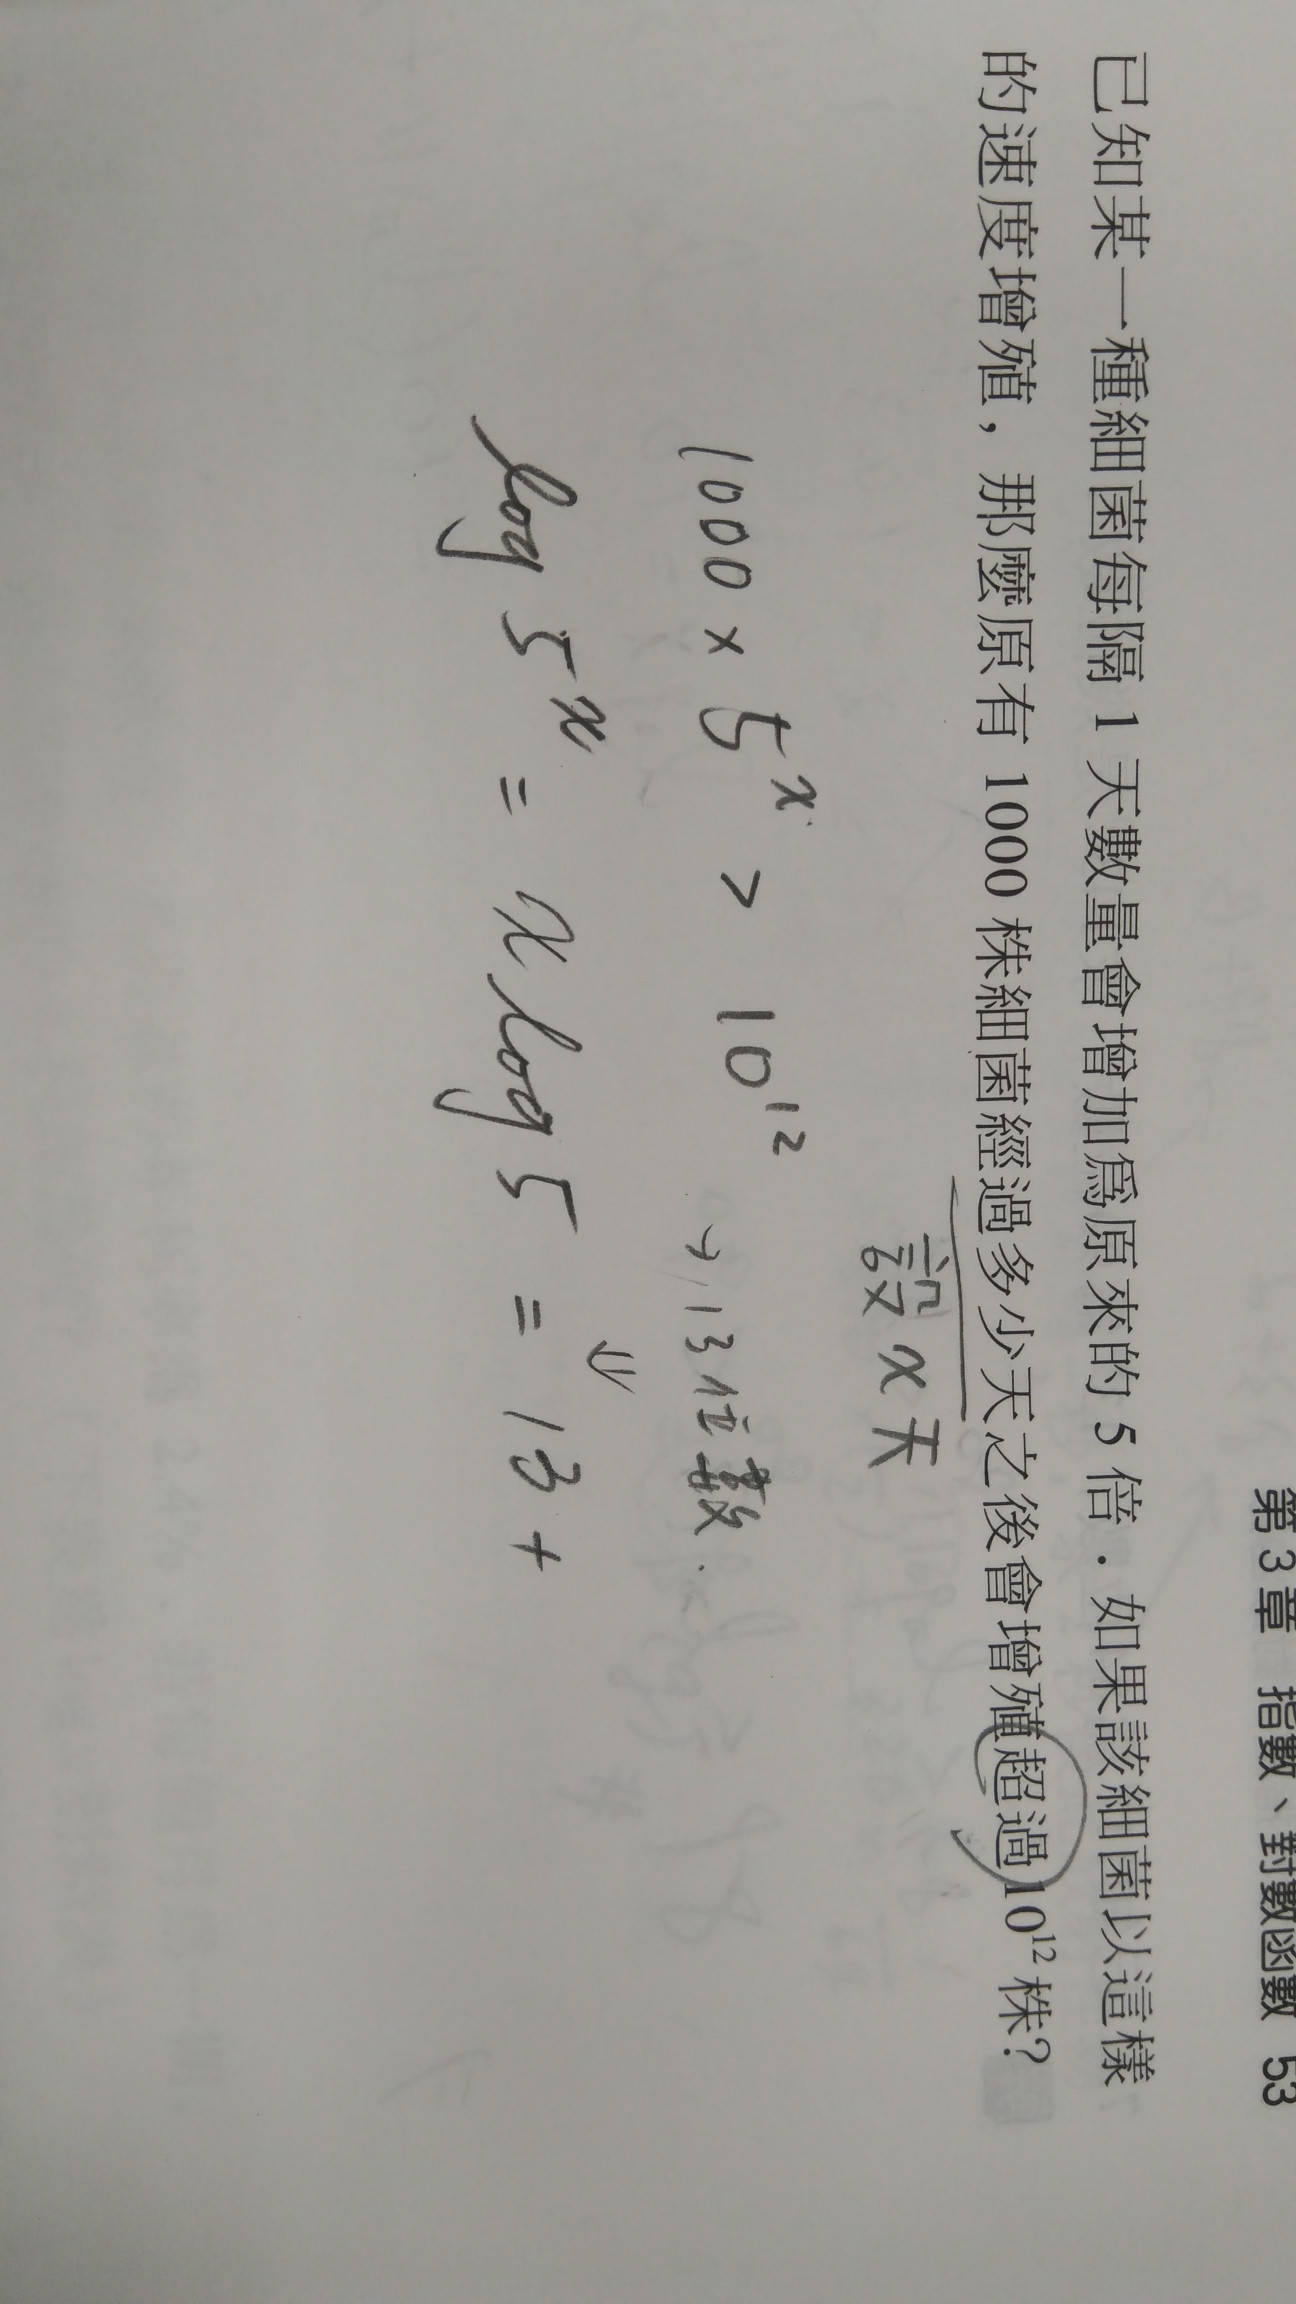 第 3 章　指數、對數函數　53
已知某一種細菌每隔 1 天數量會增加為原來的 5 倍．如果該細菌以這樣
的速度增殖，那麼原有 1000 株細菌經過多少天之後會增殖超過 10¹² 株？
設 x 天
1000 × 5ˣ > 10¹² → 13位數.
⇓
log 5ˣ = x log 5 = 13 +